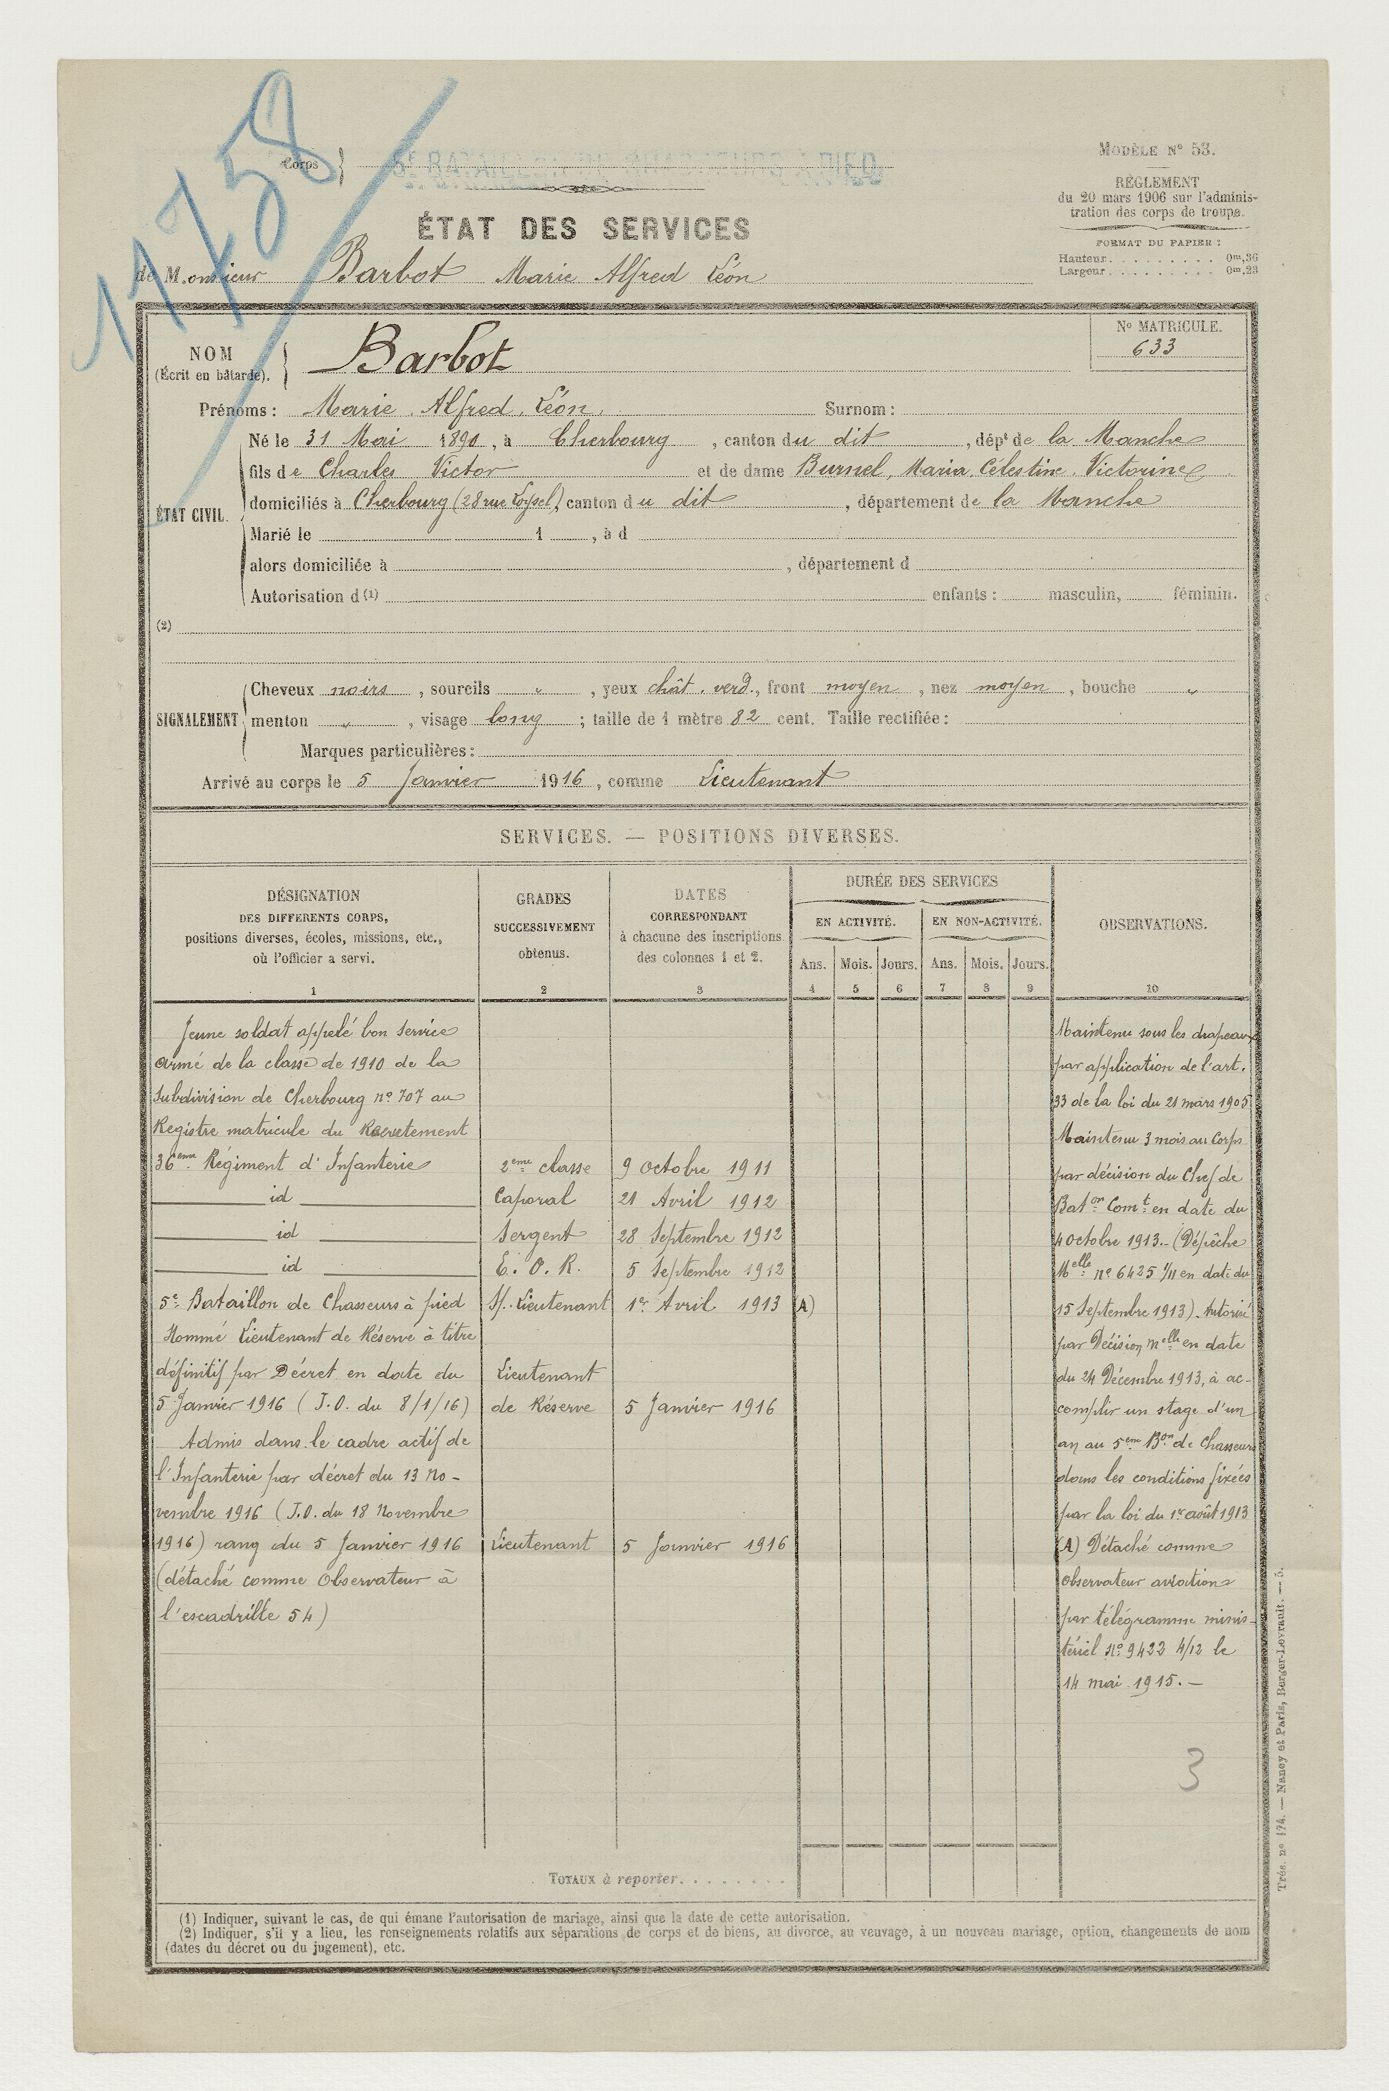 1758
Corps 5e BATAILLON DE CHASSEURS A PIED
MODÈLE No 53.
RÈGLEMENT
du 20 mars 1906 sur l'adminis-
tration des corps de troupe.
FORMAT DU PAPIER :
Hauteur......... 0m,36
Largeur......... 0m,23
ÉTAT DES SERVICES
de Monsieur Barbot Marie Alfred Léon
No MATRICULE.
633
NOM
(Écrit en bâtarde).
Barbot
Prénoms : Marie, Alfred, Léon, Surnom :
ÉTAT CIVIL.
Né le 31 Mai 1890, à Cherbourg, canton du dit, dépt de la Manche
fils de Charles Victor et de dame Burnel, Maria, Célestine, Victorine
domiciliés à Cherbourg (28 rue), canton du dit, département de la Manche
Marié le 1 , à d
alors domiciliée à , département d
Autorisation d (1) enfants : masculin, féminin.
(2)
SIGNALEMENT
Cheveux noirs, sourcils " , yeux chât. verd., front moyen, nez moyen, bouche "
menton " , visage long ; taille de 1 mètre 82 cent. Taille rectifiée :
Marques particulières :
Arrivé au corps le 5 Janvier 1916, comme Lieutenant
SERVICES. — POSITIONS DIVERSES.
DÉSIGNATION
DES DIFFÉRENTS CORPS,
positions diverses, écoles, missions, etc.,
où l'officier a servi.
1
GRADES
SUCCESSIVEMENT
obtenus.
2
DATES
CORRESPONDANT
à chacune des inscriptions
des colonnes 1 et 2.
3
DURÉE DES SERVICES
EN ACTIVITÉ. EN NON-ACTIVITÉ.
Ans. Mois. Jours. Ans. Mois. Jours.
4 5 6 7 8 9
OBSERVATIONS.
10
Jeune soldat appelé bon service
armé de la classe de 1910 de la
subdivision de Cherbourg no 707 au
Registre matricule du Recrutement
36eme Régiment d'Infanterie 2eme classe 9 octobre 1911
id Caporal 21 Avril 1912
id Sergent 28 Septembre 1912
id E. O. R. 5 Septembre 1912
5e Bataillon de Chasseurs à pied S/. Lieutenant 1er Avril 1913 (A)
Nommé Lieutenant de Réserve à titre
définitif par Décret en date du Lieutenant
5 Janvier 1916 (J.O. du 8/1/16) de Réserve 5 Janvier 1916
Admis dans le cadre actif de
l'Infanterie par décret du 13 No-
vembre 1916 (J.O. du 18 Novembre
1916) rang du 5 Janvier 1916 Lieutenant 5 Janvier 1916
(détaché comme Observateur à
l'escadrille 54)
Maintenu sous les drapeaux
par application de l'art.
33 de la loi du 21 mars 1905
Maintenu 3 mois au Corps
par décision du Chef de
Baton Comt en date du
4 octobre 1913.- (Dépêche
Melle no 6425 1/11 en date du
15 Septembre 1913). Autorisé
par Décision Melle en date
du 24 Décembre 1913, à ac-
complir un stage d'un
an au 5eme Bon de Chasseurs
dans les conditions fixées
par la loi du 1er août 1913
(A) Détaché comme
observateur aviation
par télégramme minis-
tériel No 9422 4/12 le
14 mai 1915.-
3
TOTAUX à reporter........
(1) Indiquer, suivant le cas, de qui émane l'autorisation de mariage, ainsi que la date de cette autorisation.
(2) Indiquer, s'il y a lieu, les renseignements relatifs aux séparations de corps et de biens, au divorce, au veuvage, à un nouveau mariage, option, changements de nom
(dates du décret ou du jugement), etc.
Trés. no 174. — Nancy et Paris, Berger-Levrault. — 5.